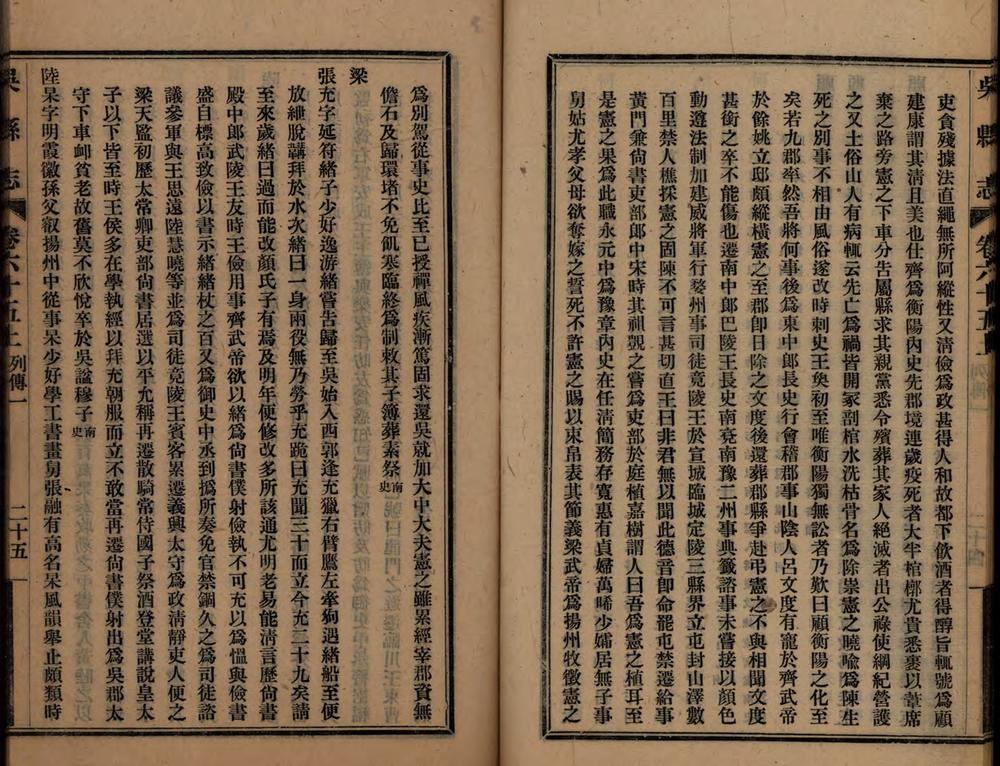 吳縣志 卷六十五上 列傳一
吏貪殘據法直繩無所阿縱性又清儉爲政甚得人和故都下飮酒者得醇旨輒號爲顧
建康謂其清且美也仕齊爲衡陽內史先郡境連歲疫死者大半棺槨尤貴悉裹以葦席
棄之路旁憲之下車分告屬縣求其親黨悉令殯葬其家人絕滅者出公祿使綱紀營護
之又土俗山人有病輒云先亡爲禍皆開冢剖棺水洗枯骨名爲除祟憲之曉喩爲陳生
死之別事不相由風俗遂改時刺史王奐初至唯衡陽獨無訟者乃歎曰顧衡陽之化至
矣若九郡率然吾將何事後爲東中郞長史行會稽郡事山陰人呂文度有寵於齊武帝
於餘姚立邸頗縱橫憲之至郡卽日除之文度後還葬郡縣爭赴弔憲之不與相聞文度
甚銜之卒不能傷也遷南中郞巴陵王長史南兗南豫二州事典籤諮事未嘗接以顏色
動遵法制加建威將軍行婺州事司徒竟陵王於宣城臨城定陵三縣界立屯封山澤數
百里禁人樵採憲之固陳不可言甚切直王曰非君無以聞此德音卽命罷屯禁遷給事
黃門兼尙書吏部郞中宋時其祖覬之嘗爲吏部於庭植嘉樹謂人曰吾爲憲之植耳至
是憲之果爲此職永元中爲豫章內史在任清簡務存寬惠有貞婦萬晞少孀居無子事
舅姑尤孝父母欲奪嫁之誓死不許憲之賜以束帛表其節義梁武帝爲揚州牧徵憲之
爲別駕從事史比至已授禪風疾漸篤固求還吳就加太中大夫憲之雖累經宰郡資無
儋石及歸環堵不免飢寒臨終爲制敕其子簿葬素祭南史
梁
張充字延符緒子少好逸游緒嘗告歸至吳始入西郭逢充獵右臂鷹左牽狗遇緒船至便
放紲脫韝拜於水次緒曰一身兩役無乃勞乎充跪曰充聞三十而立今充二十九矣請
至來歲緒曰過而能改顏氏子有焉及明年便修改多所該通尤明老易能清言歷尙書
殿中郞武陵王友時王儉用事齊武帝欲以緒爲尙書僕射儉執不可充以爲慍與儉書
盛自標高致儉以書示緒緒杖之百又爲御史中丞到撝所奏免官禁錮久之爲司徒諮
議參軍與王思遠陸慧曉等並爲司徒竟陵王賓客累遷義興太守爲政清靜吏人便之
梁天監初歷太常卿吏部尙書居選以平允稱再遷散騎常侍國子祭酒登堂講說皇太
子以下皆至時王侯多在學執經以拜充朝服而立不敢當再遷尙書僕射出爲吳郡太
守下車卹貧老故舊莫不欣悅卒於吳諡穆子南史
陸杲字明霞徽孫父叡揚州中從事杲少好學工書畫舅張融有高名杲風韻舉止頗類時
吳縣志 卷六十五上 列傳一 二十五